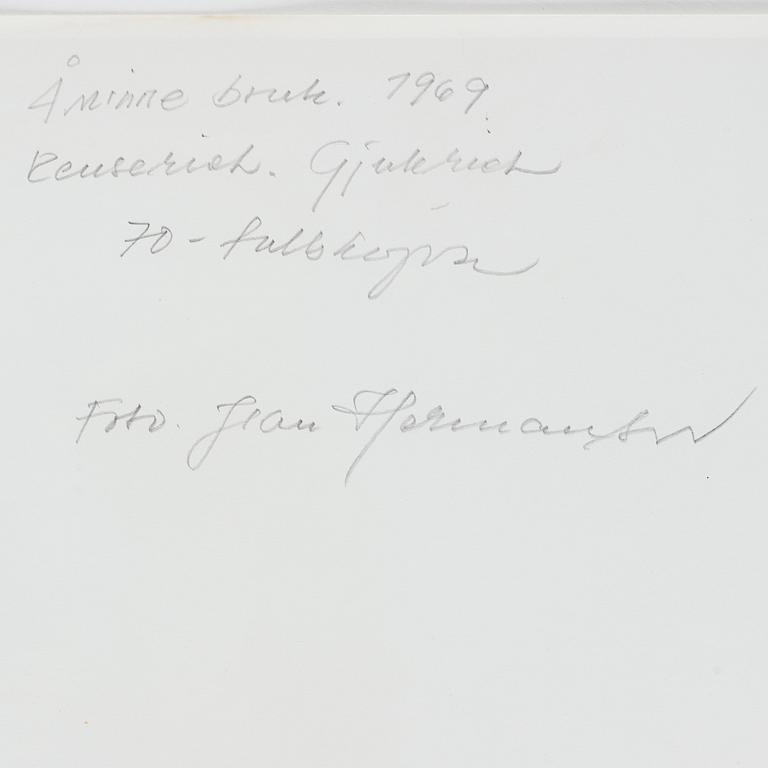 Åminne bruk. 1969.
Renseriet. Gjuteriet
70-talskopia
Foto. Jean Hermanson